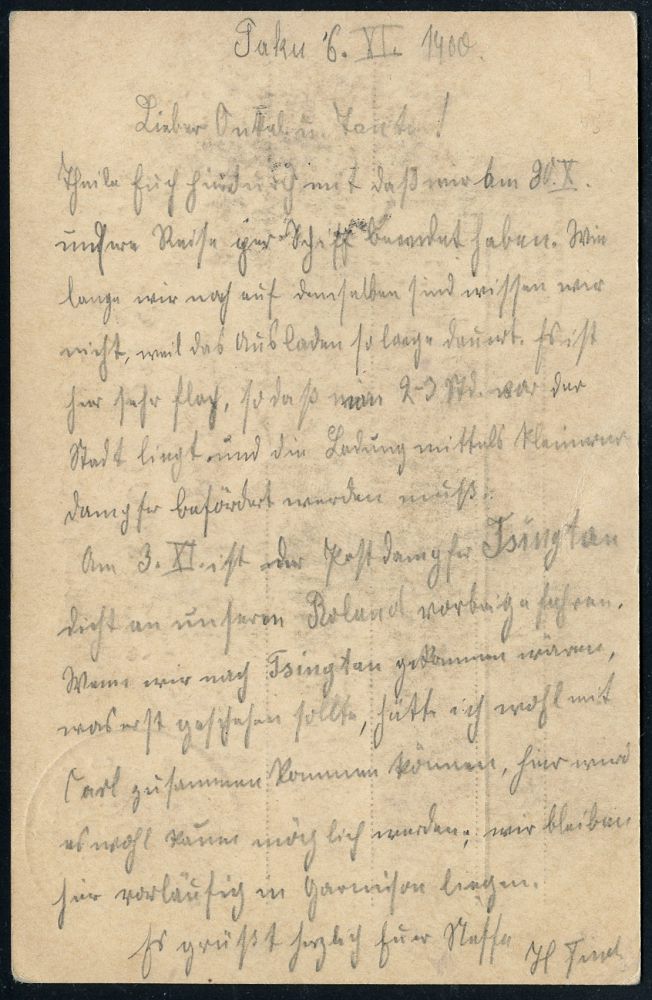 Taku 6. XI. 1900.
Lieber Onkel u. Tante!
Theile Euch hindurch mit daß wir am 30. X.
unsere Reise per Schiff beendet haben. Wie
lange wir noch auf demselben sind wissen wir
nicht, weil das Ausladen so lange dauert. Es ist
hier sehr flach, so daß man 2-3 Std. vor der
Stadt liegt und die Ladung mittels kleinerer
dampfer befördert werden muß.
Am 3. XI. ist der Postdampfer Tsingtau
dicht an unseren Roland vorbeigefahren.
Wenn wir nach Tsingtau gekommen wären,
was erst geschehen sollte, hätte ich wohl mit
Carl zusammen kommen können, hier wird
es wohl kaum möglich werden; wir bleiben
hier vorläufig in Garnison liegen.
Es grüßt herzlich Euer Neffe
H